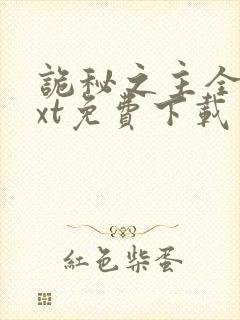 詭秘之主全
xt免費下載
紅色柴蛋